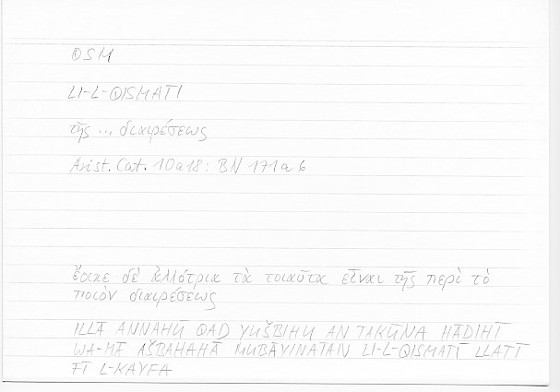 QSM
LI-L-QISMATI
τῆς ... διαιρέσεως
Arist. Cat. 10a18: BN 171a6
ἔοικε δὲ ἀλλότρια τὰ τοιαῦτα εἶναι τῆς περὶ τὸ
ποιὸν διαιρέσεως
ILLĀ ANNAHŪ QAD YUŠBIHU AN TAKŪNA HĀḎIHĪ
WA-MĀ AŠBAHAHĀ MUBĀYINATAN LI-L-QISMATI LLATĪ
FĪ L-KAYFA